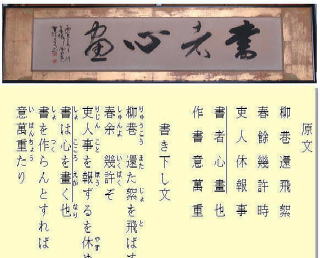 書者心畫
原文
柳巷還飛絮
春餘幾許時
吏人休報事
書者心畫也
作書意萬重
書き下し文
柳巷 還た絮を飛ばす
春余 幾許ぞ
吏人事を報ずるを休め
書は心を畫く也
書を作らんとすれば
意萬重たり